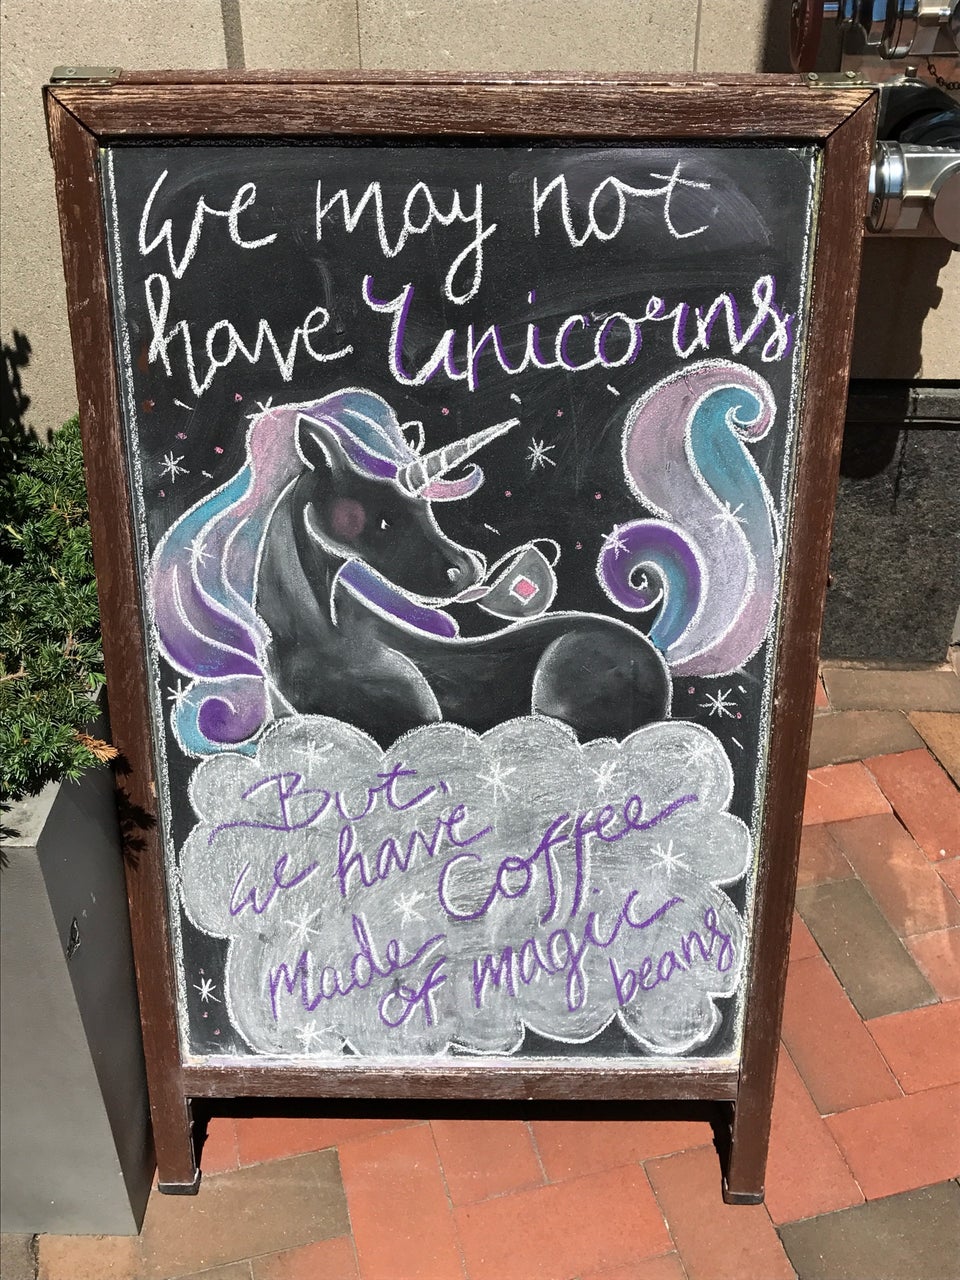 We may not
have Unicorns
But,
we have Coffee
Made of magic
beans